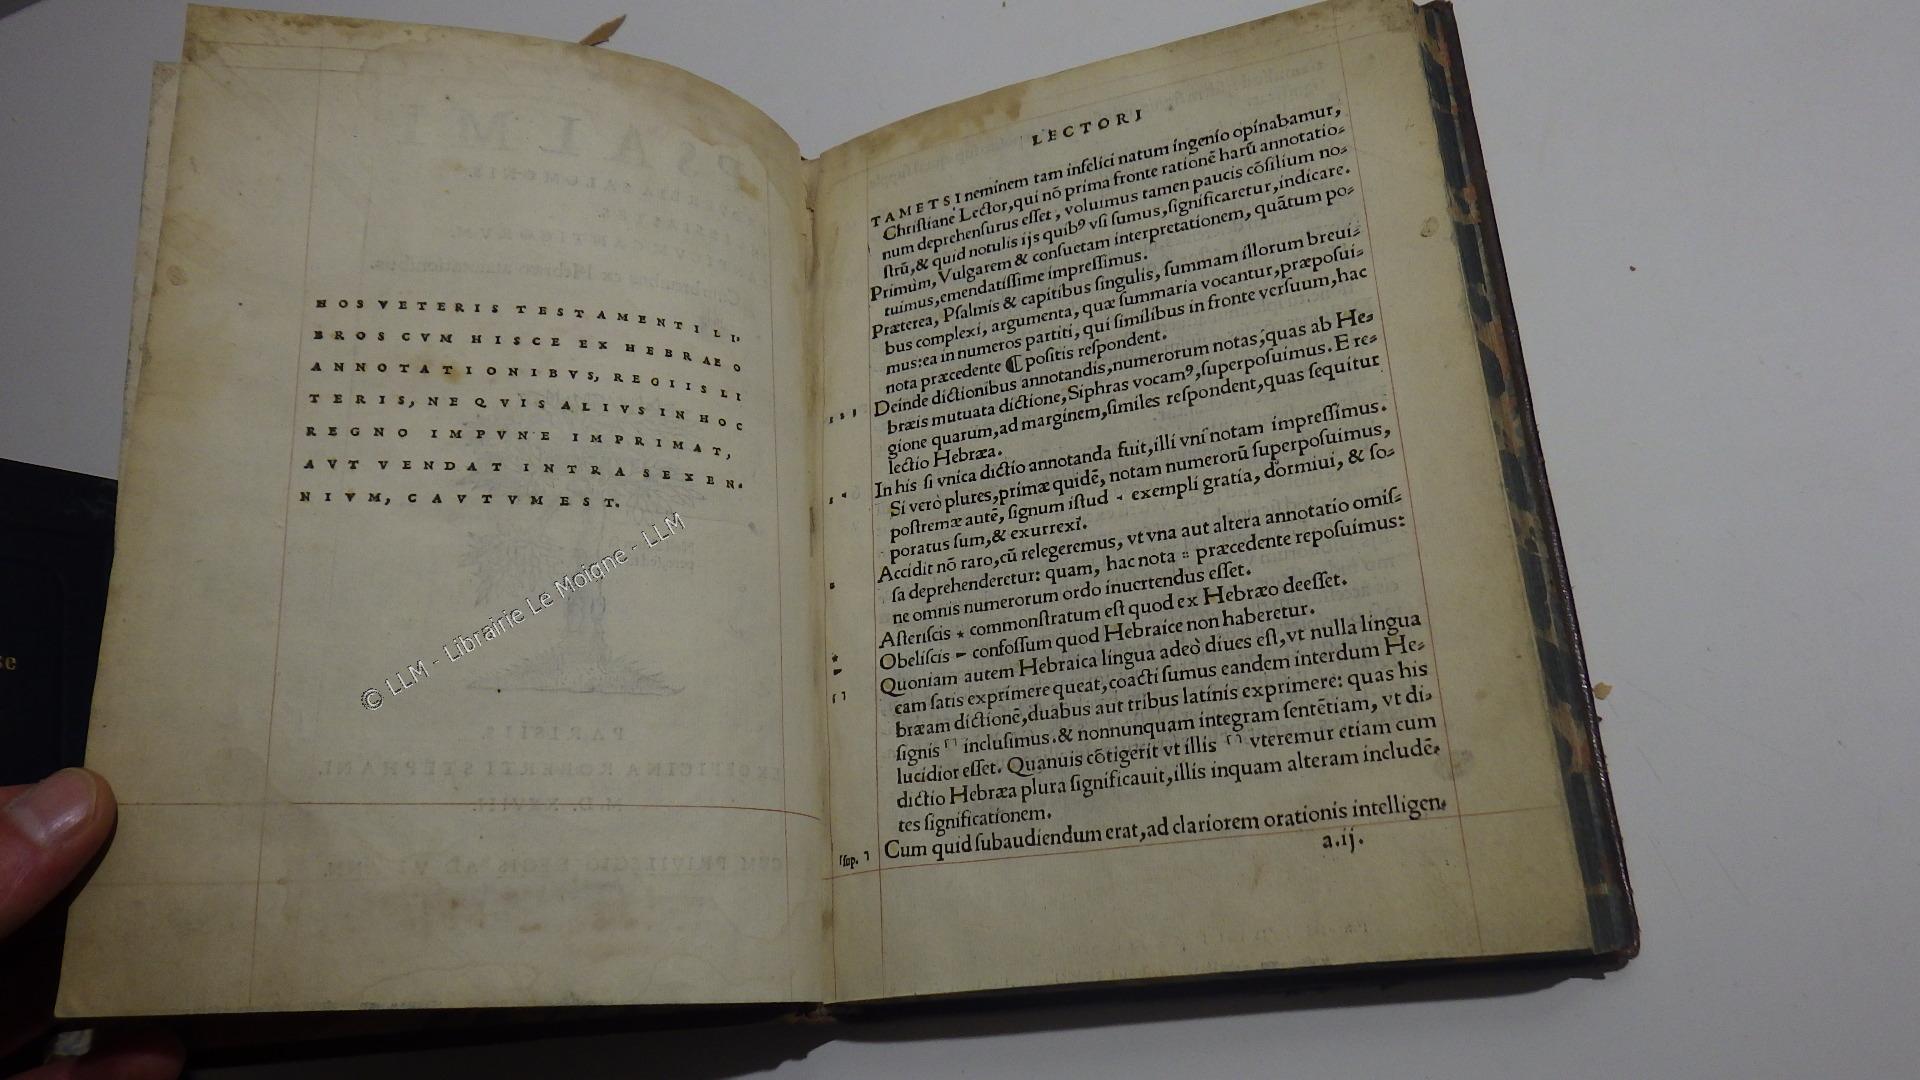 HOS VETERIS TESTAMENTI LI-
BROS CVM HISCE EX HEBRAEO
ANNOTATIONIBVS, REGIIS LI
TERIS, NE QVIS ALIVS IN HOC
REGNO IMPVNE IMPRIMAT,
AVT VENDAT INTRA SEXEN-
NIVM, CAVTVM EST.
© LLM - Librairie Le Moigne - LLM
LECTORI
TAMETSI neminem tam infelici natum ingenio opinabamur,
Christiane Lector, qui nõ prima fronte rationẽ harũ annotatio-
num deprehensurus esset, voluimus tamen paucis cõsilium no-
strũ, & quid notulis ijs quibꝰ vsi sumus, significaretur, indicare.
Primùm, Vulgarem & consuetam interpretationem, quãtum po-
tuimus, emendatissime impressimus.
Præterea, Psalmis & capitibus singulis, summam illorum breui-
bus complexi, argumenta, quæ summaria vocantur, præposui-
mus: ea in numeros partiti, qui similibus in fronte versuum, hac
nota præcedente ¶ positis respondent.
Deinde dictionibus annotandis, numerorum notas, quas ab He-
bræis mutuata dictione, Siphras vocamꝰ, superposuimus. E re-
gione quarum, ad marginem, similes respondent, quas sequitur
lectio Hebræa.
In his si vnica dictio annotanda fuit, illi vni notam impressimus.
Si verò plures, primæ quidẽ, notam numerorũ superposuimus,
postremæ autẽ, signum istud ˂ exempli gratia, dormiui, & so-
poratus sum, & exurrexi.
Accidit nõ raro, cũ relegeremus, vt vna aut altera annotatio omis-
sa deprehenderetur: quam, hac nota :: præcedente reposuimus:
ne omnis numerorum ordo inuertendus esset.
Asteriscis ⋆ commonstratum est quod ex Hebræo deesset.
Obeliscis – confossum quod Hebraice non haberetur.
Quoniam autem Hebraica lingua adeò diues est, vt nulla lingua
eam satis exprimere queat, coacti sumus eandem interdum He-
bræam dictionẽ, duabus aut tribus latinis exprimere: quas his
signis ⌈⌉ inclusimus. & nonnunquam integram sentẽtiam, vt di-
lucidior esset. Quanuis cõtigerit vt illis ⌈⌉ vteremur etiam cum
dictio Hebræa plura significauit, illis inquam alteram includẽ-
tes significationem.
⌈sup. ⌉ Cum quid subaudiendum erat, ad clariorem orationis intelligen-
a.ij.